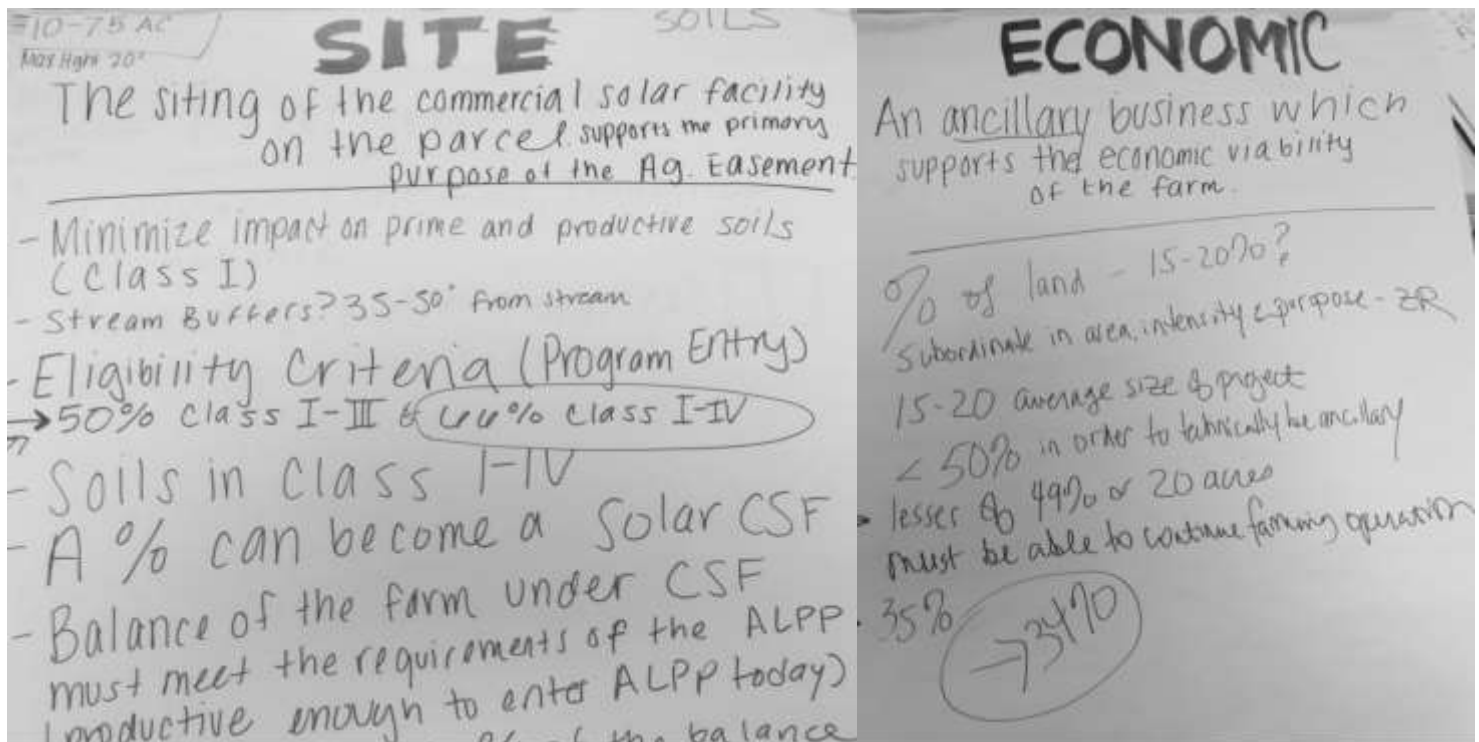 10-75 AC
Max Hght 20'
SOILS
SITE
The siting of the commercial solar facility
on the parcel supports the primary
purpose of the Ag. Easement
- Minimize impact on prime and productive soils
(Class I)
- Stream Buffers? 35-50' from stream
- Eligibility Criteria (Program Entry)
→ 50% Class I-III & 66% Class I-IV
- Soils in Class I-IV
- A % can become a Solar CSF
- Balance of the farm under CSF
must meet the requirements of the ALPP
(productive enough to enter ALPP today)
of the balance
ECONOMIC
An ancillary business which
supports the economic viability
of the farm.
% of land - 15-20%?
Subordinate in area, intensity & purpose - ZR
15-20 average size of project
< 50% in order to technically be ancillary
lesser of 49% or 20 acres
must be able to continue farming operation
35%
→ 34%